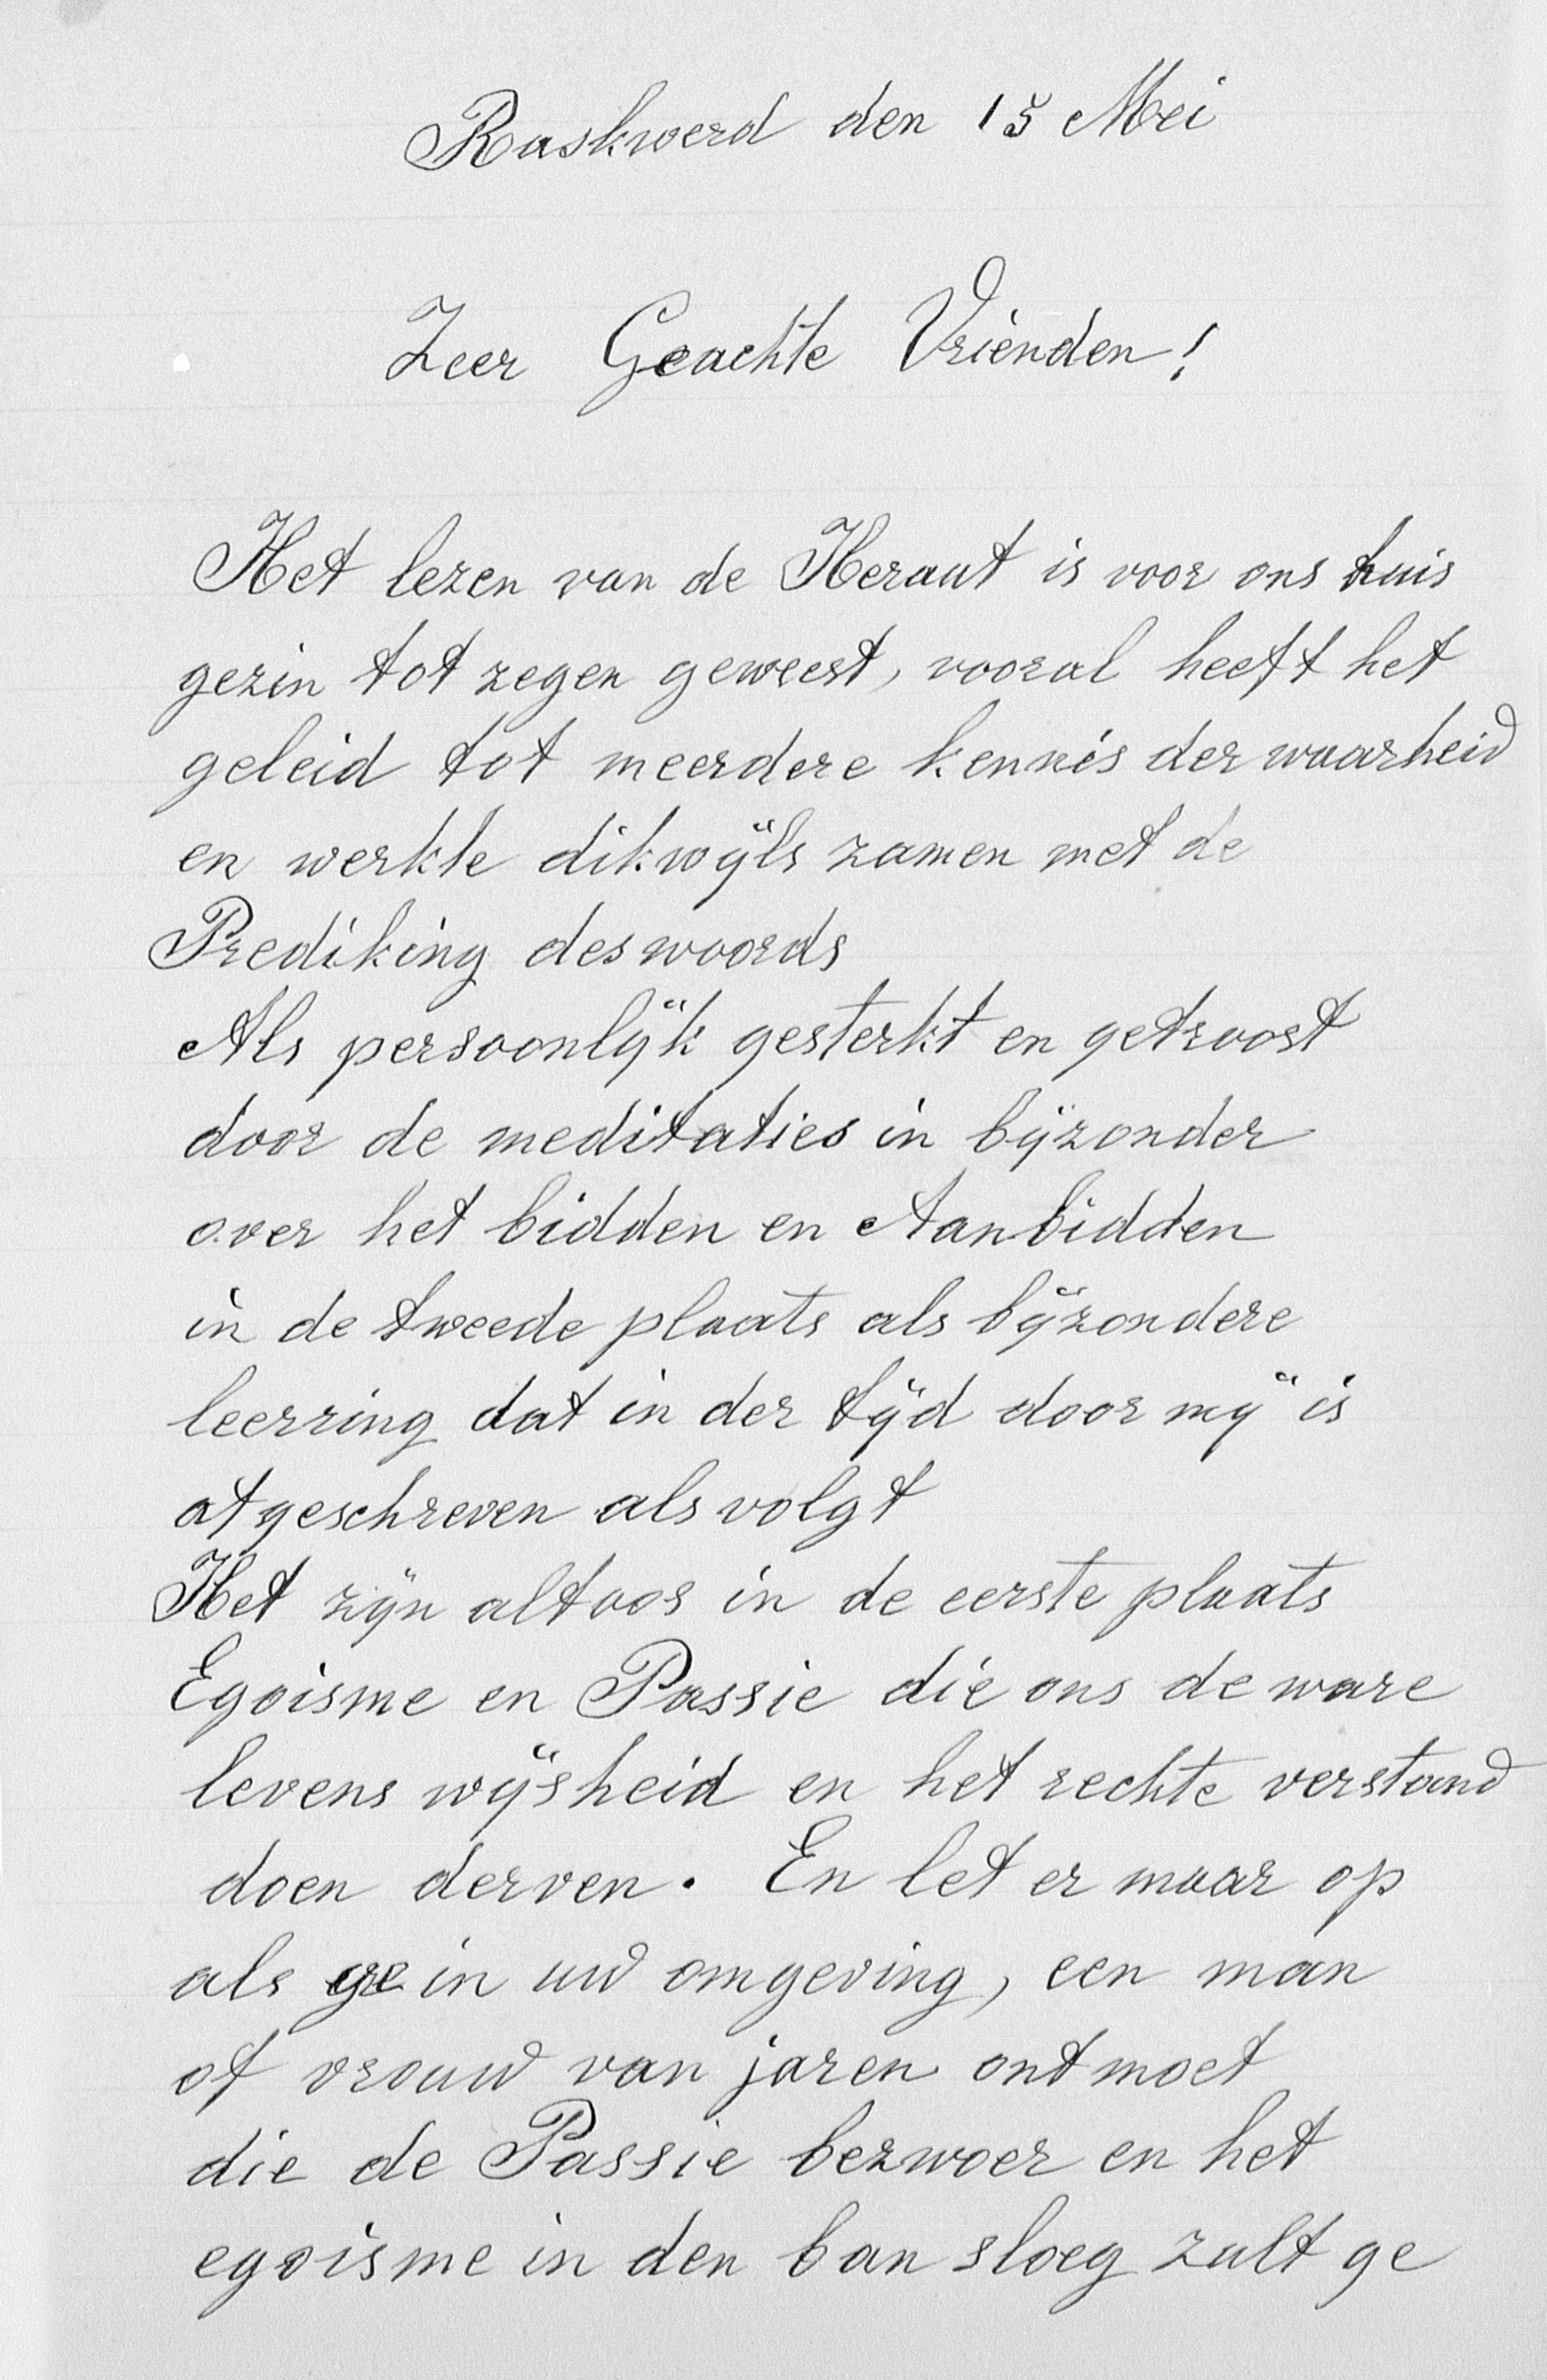 Raskwerd den 15 Mei
Zeer Geachte Vrienden!
Het lezen van de Heraut is voor ons huis
gezin tot zegen geweest, vooral heeft het
geleid tot meerdere kennis der waarheid
en werkte dikwijls zamen met de
Prediking des woords
Als persoonlijk gesterkt en getroost
door de meditaties in bijzonder
over het bidden en Aanbidden
in de tweede plaats als bijzondere
leerring dat in der tijd door mij is
afgeschreven als volgt
Het zijn altoos in de eerste plaats
Egoisme en Passie die ons de ware
levens wijsheid en het rechte verstand
doen derven. En let er maar op
als ge in uw omgeving, een man
of vrouw van jaren ontmoet
die de Passie bezwoer en het
egoisme in den ban sloeg zult ge